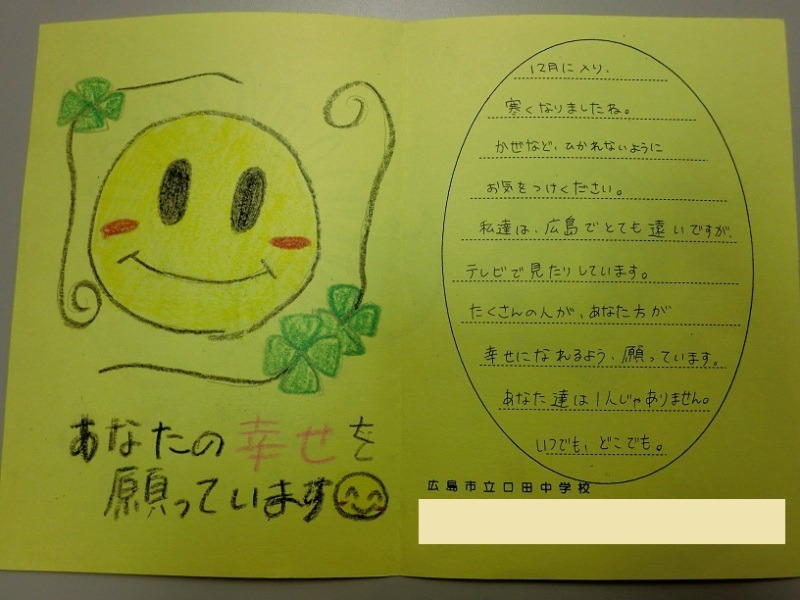 あなたの幸せを
願っています
12月に入り、
寒くなりましたね。
かぜなど、ひかれないように
お気をつけください。
私達は、広島でとても遠いですが、
テレビで見たりしています。
たくさんの人が、あなた方が
幸せになれるよう、願っています。
あなた達は1人じゃありません。
いつでも、どこでも。
広島市立口田中学校